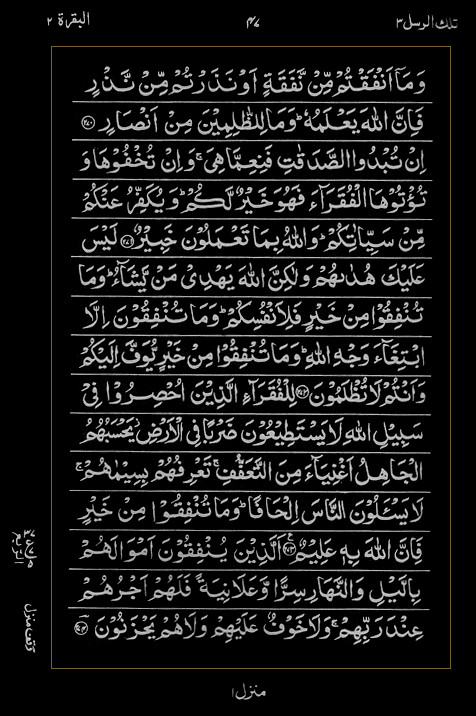 تلك الرسل ٣
٤٧
البقرة ٢
وَمَآ اَنْفَقْتُمْ مِّنْ نَّفَقَةٍ اَوْ نَذَرْتُمْ مِّنْ نَّذْرٍ
فَاِنَّ اللّٰهَ يَعْلَمُهٗ ؕ وَمَا لِلظّٰلِمِيْنَ مِنْ اَنْصَارٍ ۝۲۷۰
اِنْ تُبْدُوا الصَّدَقٰتِ فَنِعِمَّا هِىَ ۚ وَاِنْ تُخْفُوْهَا وَ
تُؤْتُوْهَا الْفُقَرَآءَ فَهُوَ خَيْرٌ لَّكُمْ ؕ وَيُكَفِّرُ عَنْكُمْ
مِّنْ سَيِّاٰتِكُمْ ؕ وَاللّٰهُ بِمَا تَعْمَلُوْنَ خَبِيْرٌ ۝۲۷۱ لَيْسَ
عَلَيْكَ هُدٰىهُمْ وَلٰكِنَّ اللّٰهَ يَهْدِىْ مَنْ يَّشَآءُ ؕ وَمَا
تُنْفِقُوْا مِنْ خَيْرٍ فَلِاَنْفُسِكُمْ ؕ وَمَا تُنْفِقُوْنَ اِلَّا
ابْتِغَآءَ وَجْهِ اللّٰهِ ؕ وَمَا تُنْفِقُوْا مِنْ خَيْرٍ يُّوَفَّ اِلَيْكُمْ
وَاَنْتُمْ لَا تُظْلَمُوْنَ ۝۲۷۲ لِلْفُقَرَآءِ الَّذِيْنَ اُحْصِرُوْا فِىْ
سَبِيْلِ اللّٰهِ لَا يَسْتَطِيْعُوْنَ ضَرْبًا فِى الْاَرْضِ ۫ يَحْسَبُهُمُ
الْجَاهِلُ اَغْنِيَآءَ مِنَ التَّعَفُّفِ ۚ تَعْرِفُهُمْ بِسِيْمٰهُمْ ۚ
لَا يَسْـَٔلُوْنَ النَّاسَ اِلْحَافًا ؕ وَمَا تُنْفِقُوْا مِنْ خَيْرٍ
فَاِنَّ اللّٰهَ بِهٖ عَلِيْمٌ ۝۲۷۳ اَلَّذِيْنَ يُنْفِقُوْنَ اَمْوَالَهُمْ
بِالَّيْلِ وَالنَّهَارِ سِرًّا وَّعَلَانِيَةً فَلَهُمْ اَجْرُهُمْ
عِنْدَ رَبِّهِمْ ۚ وَلَا خَوْفٌ عَلَيْهِمْ وَلَا هُمْ يَحْزَنُوْنَ ۝۲۷۴
منزل ١